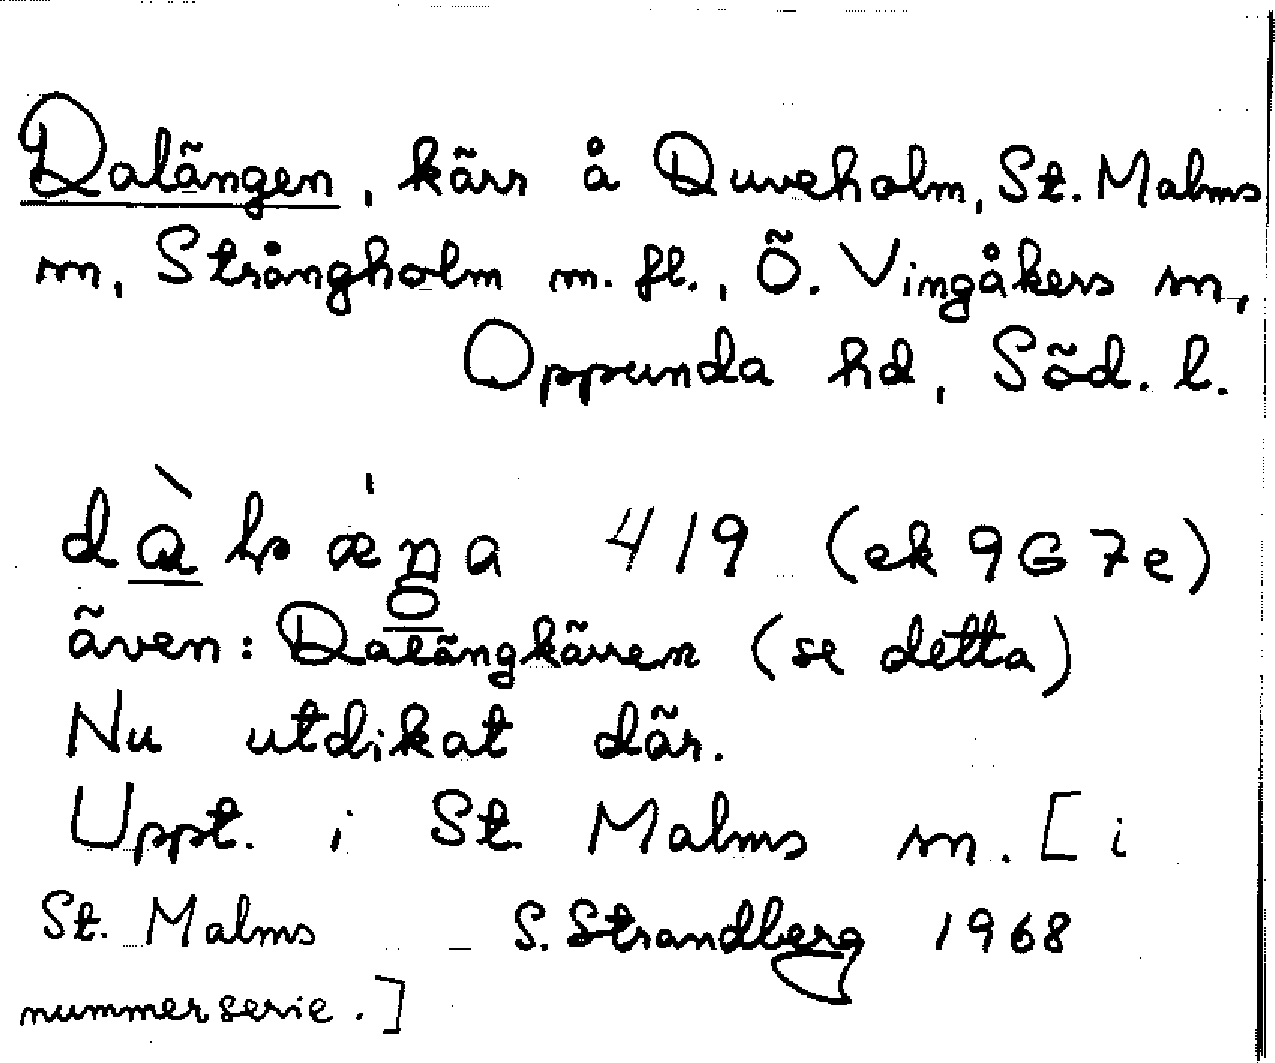 Dalängen, kärr å Duveholm, St. Malms
sn, Strångholm m. fl., Ö. Vingåkers sn,
Oppunda hd, Söd. l.
419 (ek 9G7e)
även: Dalängkärren (se detta)
Nu utdikat där.
Uppt. i St. Malms sn. [i
St. Malms S. Strandberg 1968
nummerserie.]